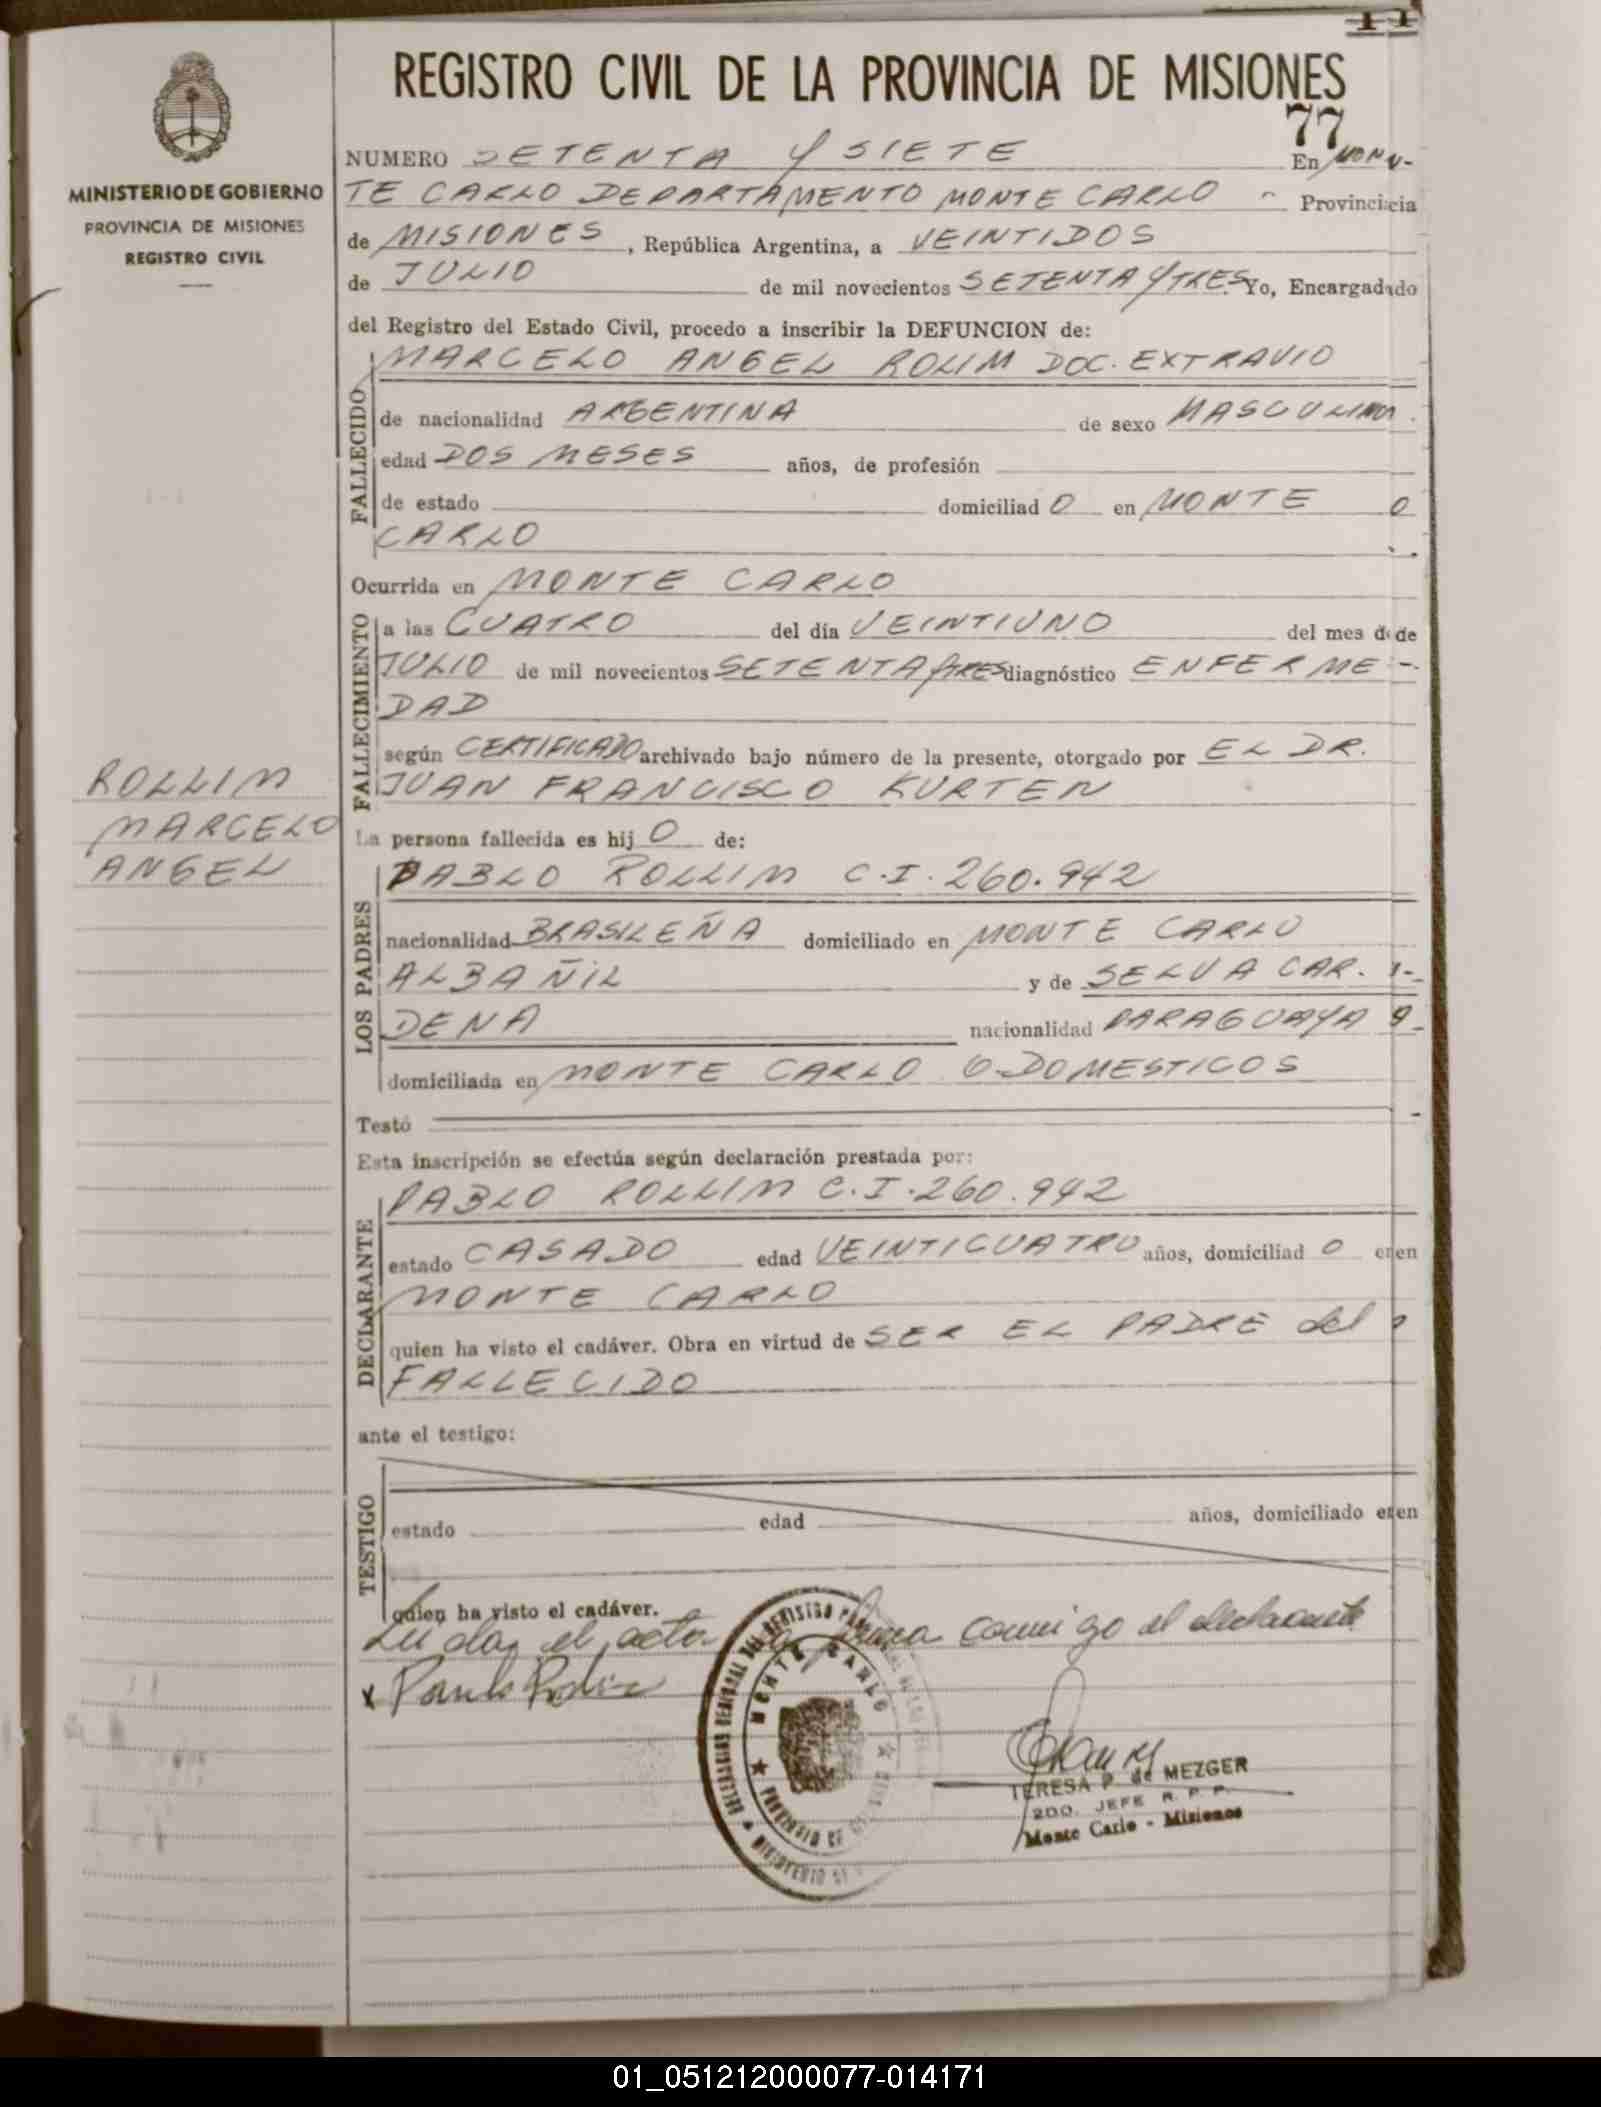 REGISTRO CIVIL DE LA PROVINCIA DE MISIONES
77
MINISTERIO DE GOBIERNO
PROVINCIA DE MISIONES
REGISTRO CIVIL
NUMERO SETENTA Y SIETE En MON-
TE CARLO DEPARTAMENTO MONTE CARLO Provincia
de MISIONES, República Argentina, a VEINTIDOS
de JULIO de mil novecientos SETENTA Y TRES Yo, Encargado
del Registro del Estado Civil, procedo a inscribir la DEFUNCION de:
MARCELO ANGEL ROLIM DOC. EXTRAVIO
FALLECIDO
de nacionalidad ARGENTINA de sexo MASCULINO
edad DOS MESES años, de profesión
de estado domiciliad O en MONTE
CARLO
Ocurrida en MONTE CARLO
FALLECIMIENTO
a las CUATRO del día VEINTIUNO del mes de
JULIO de mil novecientos SETENTA Y TRES diagnóstico ENFERME-
DAD
según CERTIFICADO archivado bajo número de la presente, otorgado por EL DR.
JUAN FRANCISCO KURTEN
ROLLIM
MARCELO
ANGEL
La persona fallecida es hij O de:
PABLO ROLLIM C.I. 260.942
LOS PADRES
nacionalidad BRASILEÑA domiciliado en MONTE CARLO
ALBAÑIL y de SELVA CAR-
DENA nacionalidad PARAGUAYA
domiciliada en MONTE CARLO Q. DOMESTICOS
Testó
Esta inscripción se efectúa según declaración prestada por:
PABLO ROLLIM C.I. 260.942
DECLARANTE
estado CASADO edad VEINTICUATRO años, domiciliad O en
MONTE CARLO
quien ha visto el cadáver. Obra en virtud de SER EL PADRE del
FALLECIDO
ante el testigo:
TESTIGO
estado edad años, domiciliado en
quien ha visto el cadáver.
Leída, el acta la firma conmigo el declarante
MONTE CARLO
TERESA P. de MEZGER
2DO. JEFE R. P. P.
Monte Carlo - Misiones
01_051212000077-014171